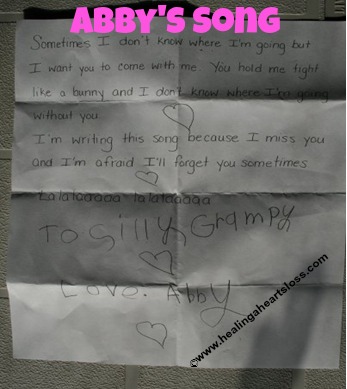 ABBY'S SONG
Sometimes I don't know where I'm going but
I want you to come with me. You hold me tight
like a bunny and I don't know where I'm going
without you
I'm writing this song because I miss you
and I'm afraid I'll forget you sometimes
Lalalaaaaaa lalalaaaaaa
TO Silly Grampy
Love. Abby
©www.healingaheartsloss.com